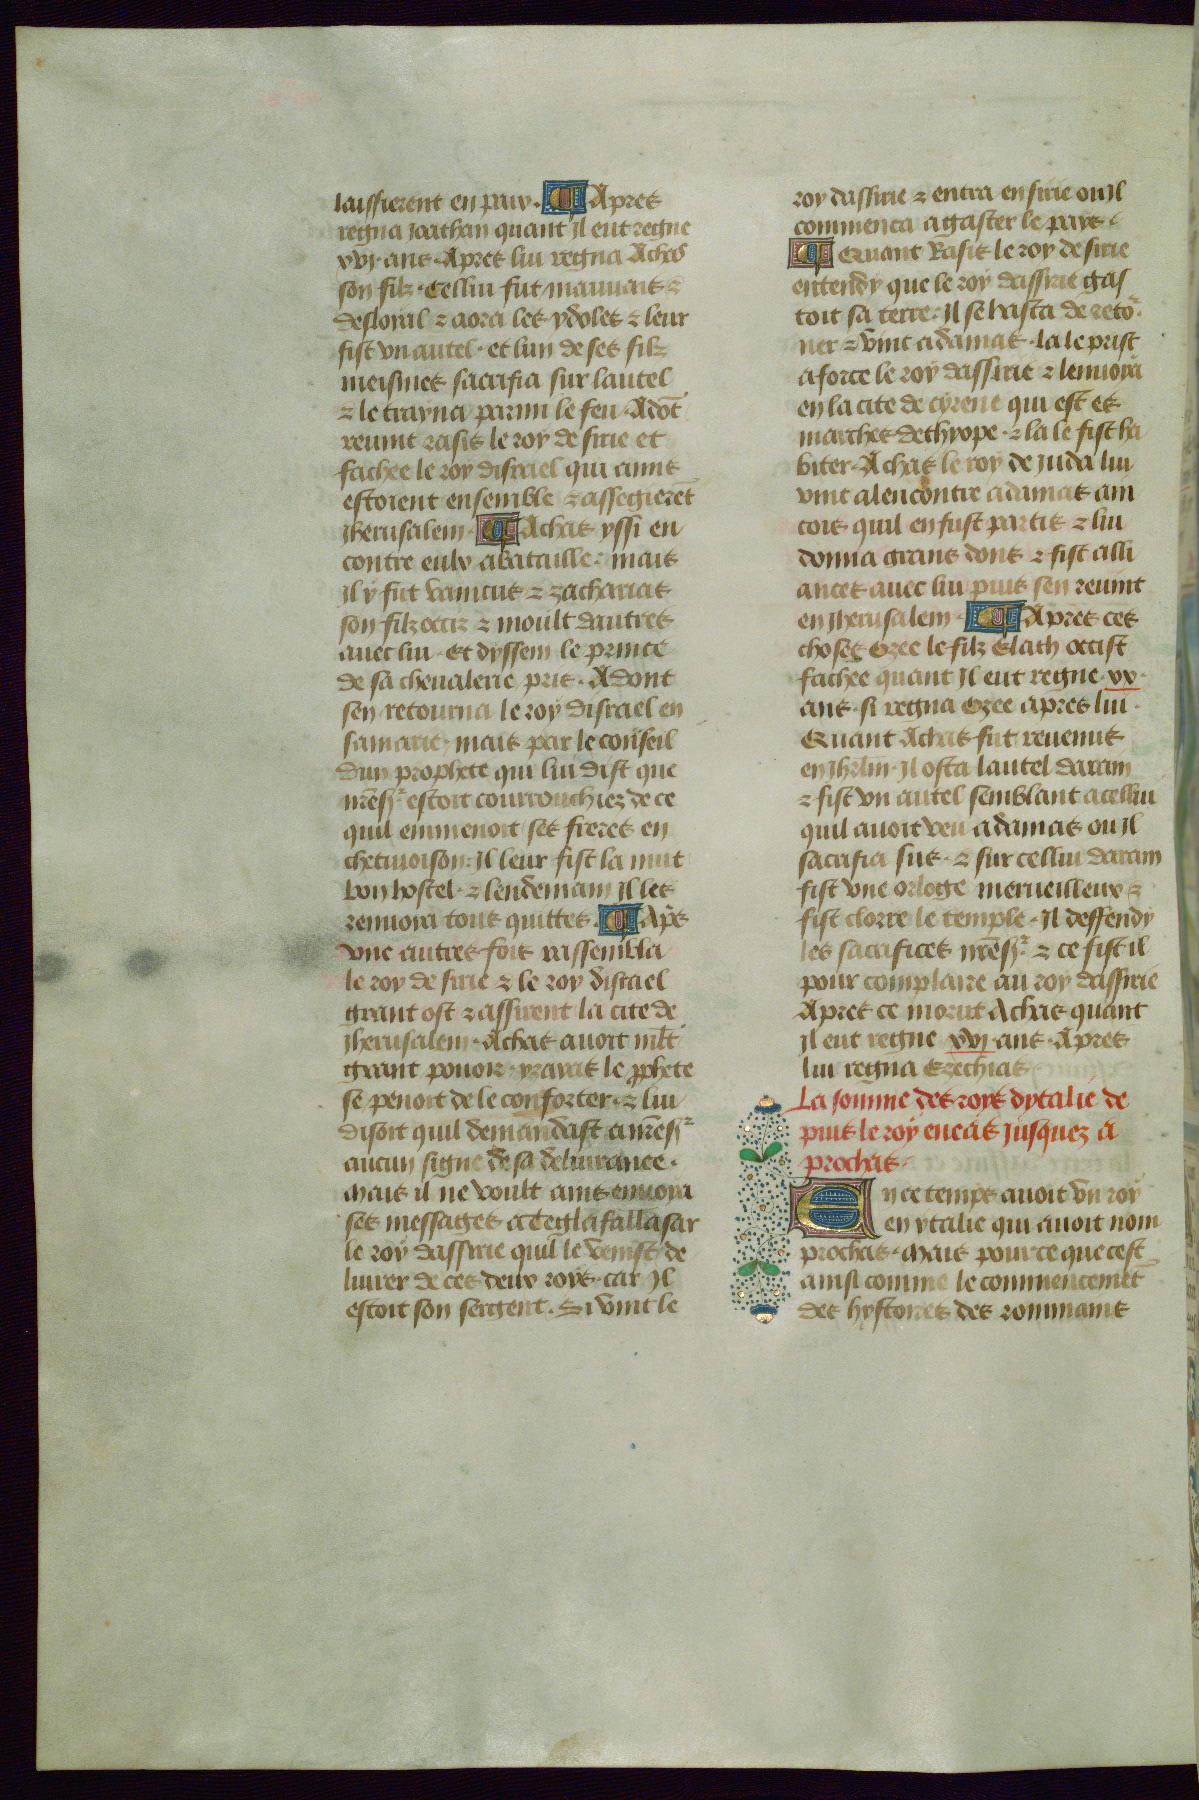 laissierent en paix. Apres
regna Joathan quant Il eut regne
xvj. ans. Apres lui regna Achas
son filz. Cellui fut mauuais ⁊
desloyal ⁊ aora les ydoles ⁊ leur
fist vn autel. et lun de ses filz
meismes sacrifia sur lautel
⁊ le trayna parmi le feu. Adōt
reuint rasis le roy de sirie et
fachee le roy disrael qui amis
estoient ensemble ⁊ assegierēt
Jherusalem. Achas yssi en
contre eulx abataille: mais
il y fut vaincus ⁊ zacharias
son filz occiz ⁊ moult dautres
auec lui. Et dyssem le prince
de sa cheualerie pris. Adont
sen retourna le roy disrael en
samarie, mais par le conseil
dun prophete qui lui dist que
nr̄es.^r estoit courrouchiez de ce
quil emmenoit ses freres en
chetiuoison: Il leur fist la nuit
bon hostel. ⁊ lendemain il les
renuoya tous quittes. Ap̄s
vne autres fois rassembla
le roy de sirie ⁊ le roy disrael
grant ost ⁊ assirent la cite de
Jherusalem. Achas auoit ml̄t
grant pouoir. yzayas le ꝓphete
se penoit de le conforter. ⁊ lui
disoit quil demandast a nr̄es.^r
aucun signe de sa deliurance.
Mais il ne voult ains enuoya
ses messages a teglafallasar
le roy dassirie quil le venist de
liurer de ces deux roys. car Il
estoit son sergent. Si vint le
roy dassirie ⁊ entra en sirie ou il
commenca a gaster le pays.
Quant Rasis le roy de sirie
entendy que le roy dassirie gas
toit sa terre: Il se hasta de reto^r
ner ⁊ vint a damas. la le prist
a force le roy dassirie ⁊ lenuoya
en la cite de cyrene qui est es
marches dethyope. ⁊ la le fist ha
biter. Achas le roy de Juda lui
vint alencontre a damas ain
cois quil en fust partis ⁊ lui
donna grans dons ⁊ fist alli
ances auec lui puis sen reuint
en Jherusalem. Apres ces
choses Ozee le filz Elath occist
fachee quant Il eut regne. xx.
ans. si regna Ozee apres lui.
Quant Achas fut reuenus
en Jhrl̄m. Il osta lautel darain
⁊ fist vn autel semblant a cellui
quil auoit veu a damas ou Il
sacrifia sus. ⁊ sur cellui darain
fist vne orloge merueilleux ⁊
fist clorre le temple. Il deffendy
les sacrifices nr̄es.^r ⁊ ce fist il
pour complaire au roy dassirie
Apres ce morut Achas quant
Il eut regne xvj. ans. Apres
lui regna Ezechias
La somme des roys dytalie de
puis le roy eneas Jusquez a
prochas.
En ce temps auoit vn roy
en ytalie qui auoit nom
prochas. Mais pour ce que cest
ainsi comme le commencemēt
des hystoires des rommains